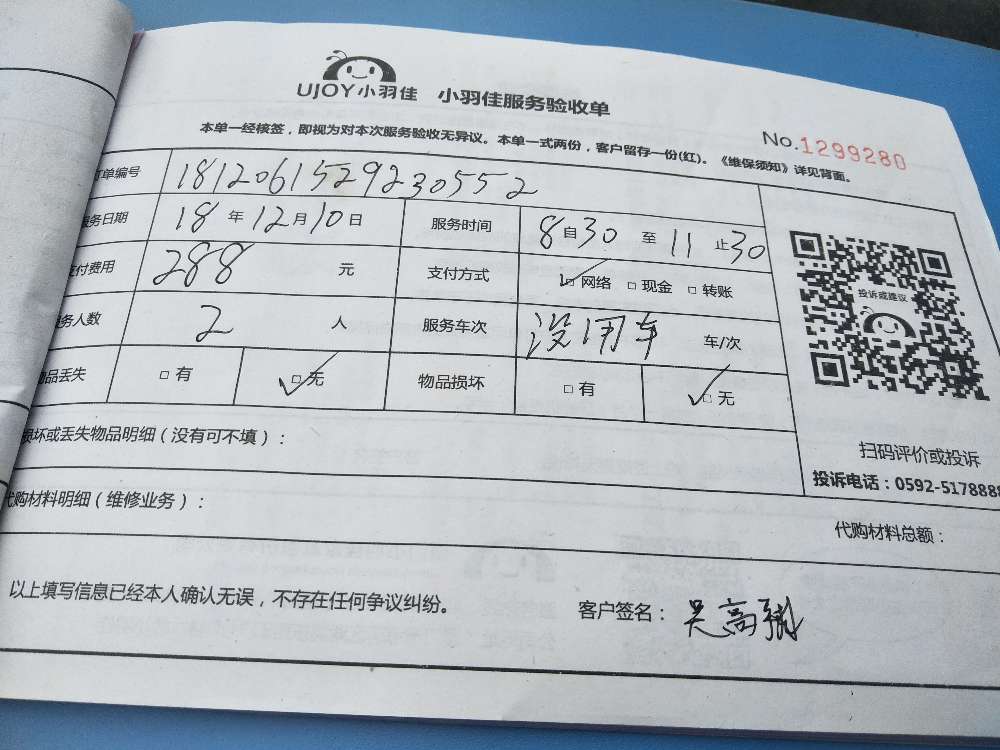 UJOY小羽佳 小羽佳服务验收单
本单一经核签，即视为对本次服务验收无异议。本单一式两份，客户留存一份(红)。《维保须知》详见背面。
No.1299280
订单编号 181206152923055 2
服务日期 18 年 12 月 10 日 服务时间 8 自 30 至 11 止 30
支付费用 288 元 支付方式 ☑网络 □现金 □转账
服务人数 2 人 服务车次 没用车 车/次
物品丢失 □有 ☑无 物品损坏 □有 ☑无
投诉或建议
扫码评价或投诉
投诉电话：0592-5178888
损坏或丢失物品明细（没有可不填）：
代购材料明细（维修业务）：
代购材料总额：
以上填写信息已经本人确认无误，不存在任何争议纠纷。 客户签名：吴高